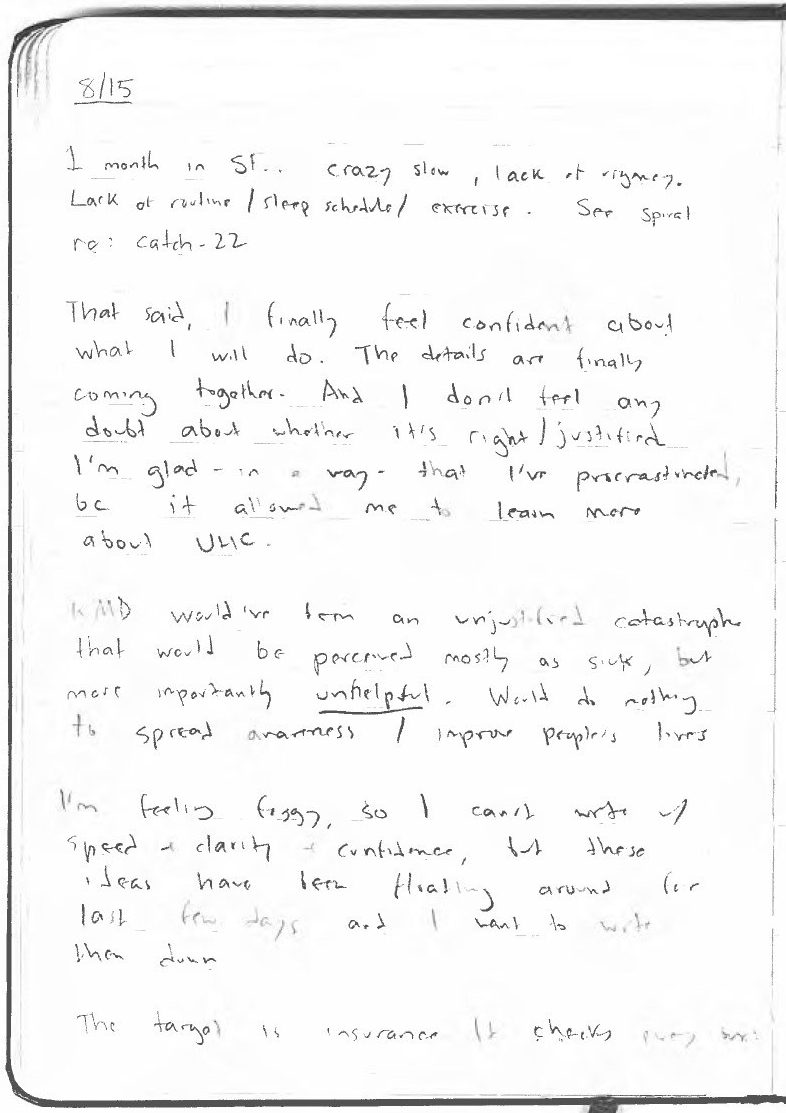 8/15
1 month in SF.. crazy slow, lack of
Lack of routine / sleep schedule / exercise. See spiral
re: catch-22
That said, I finally feel confident about
what I will do. The details are finally
coming together. And I don't feel any
doubt about whether it's right / justified
I'm glad - in a way - that I've procrastinated,
bc it allowed me to learn more
about UHC.
KMD would've been an unjustified catastrophe
that would be perceived mostly as sick, but
more importantly unhelpful. Would do nothing
to spread awareness / improve people's lives
I'm feeling foggy, so I can't write w/
speed + clarity + confidence, but these
ideas have been floating around for
last few days and I want to write
them down
The target is insurance It checks every box: